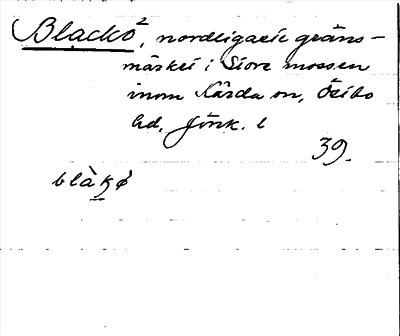 Blackö², nordligaste gräns-
märket i Store mossen
inom Kärda sn, Östbo
hd, Jönk. l
39.
blàkø